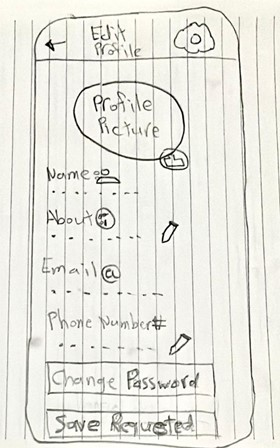 Edit
Profile
Profile
Picture
Name:
About
Email @
Phone Number#
Change Password
Save Requested